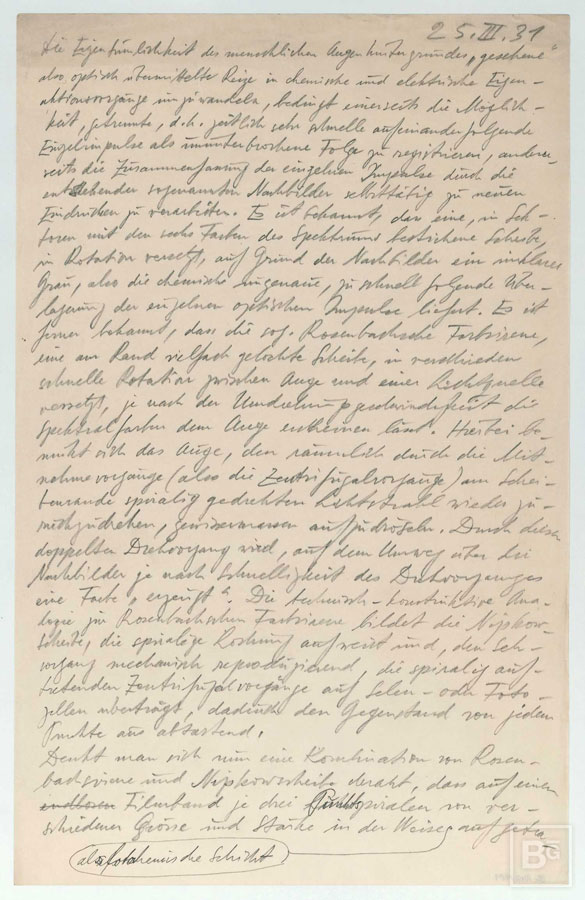 25. III. 31
Die Eigentümlichkeit des menschlichen Augenhintergrundes, „gesehene“
also optisch übermittelte Reize in chemische und elektrische Eigen-
aktionsvorgänge umzuwandeln, bedingt einerseits die Möglich-
keit, getrennte, d.h. zeitlich sehr schnelle aufeinanderfolgende
Einzelimpulse als ununterbrochene Folge zu registrieren, anderer-
seits die Zusammenfassung der einzelnen Impulse durch die
entstehenden sogenannten Nachbilder selbsttätig zu neuen
Eindrücken zu verarbeiten. Es ist bekannt, dass eine, in Sek-
toren mit den sechs Farben des Spektrums bestrichene Scheibe,
in Rotation versetzt, auf Grund der Nachbilder ein unklares
Grau, also die chemische ungenaue, zu schnell folgende Über-
lagerung der einzelnen optischen Impulse liefert. Es ist
ferner bekannt, dass die sog. Rosenbachsche Farbsirene,
eine am Rand vielfach gelochte Scheibe, in verschieden
schnelle Rotation zwischen Auge und einer Lichtquelle
versetzt, je nach der Umdrehungsgeschwindigkeit die
Spektralfarben dem Auge erscheinen lässt. Hierbei be-
müht sich das Auge, den räumlich durch die Mit-
nahmevorgänge (also die Zentrifugalvorgänge) am Schei-
benrande spiralig gedrehten Lichtstrahl wieder zu-
rückzudrehen, gewissermassen aufzudröseln. Durch diesen
doppelten Drehvorgang wird, auf dem Umweg über die
Nachbilder je nach Schnelligkeit des Drehvorganges
eine Farbe „erzeugt“. Die technisch-konstruktive Ana-
logie zur Rosenbachschen Farbsirene bildet die Nipkow-
scheibe, die spiralige Lochung aufweist und, den Seh-
vorgang mechanisch reproduzierend, die spiralig auf-
tretenden Zentrifugalvorgänge auf Selen- oder Foto-
zellen überträgt, dadurch den Gegenstand von jedem
Punkte aus abtastend.
Denkt man sich nun eine Kombination von Rosen-
bachsirene und Nipkowscheibe derart, dass auf einem
endlosen Filmband je drei spiralen von ver-
schiedener Grösse und Stärke in der Weise aufgetra-
als fotochemische Schicht
BG